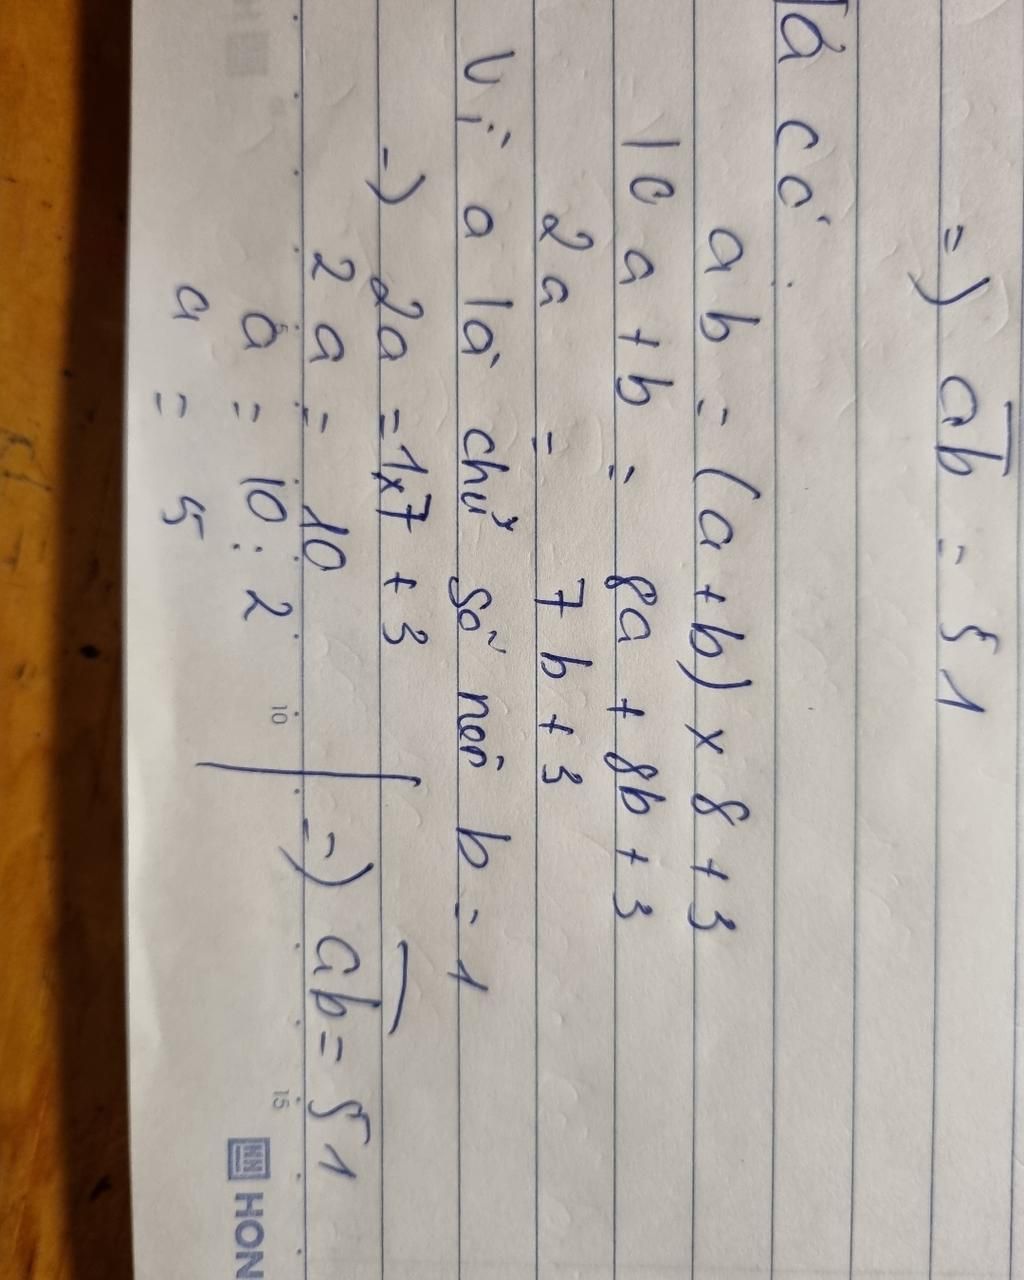 =) ab = 51
Ta có:
ab = (a + b) x 8 + 3
10 a + b = 8a + 8b + 3
2a = 7 b + 3
Vì a là chữ số nên b = 1
=) 2a = 1x7 + 3
2 a = 10
a = 10 : 2
a = 5
=) ab = 51
10
15
HON